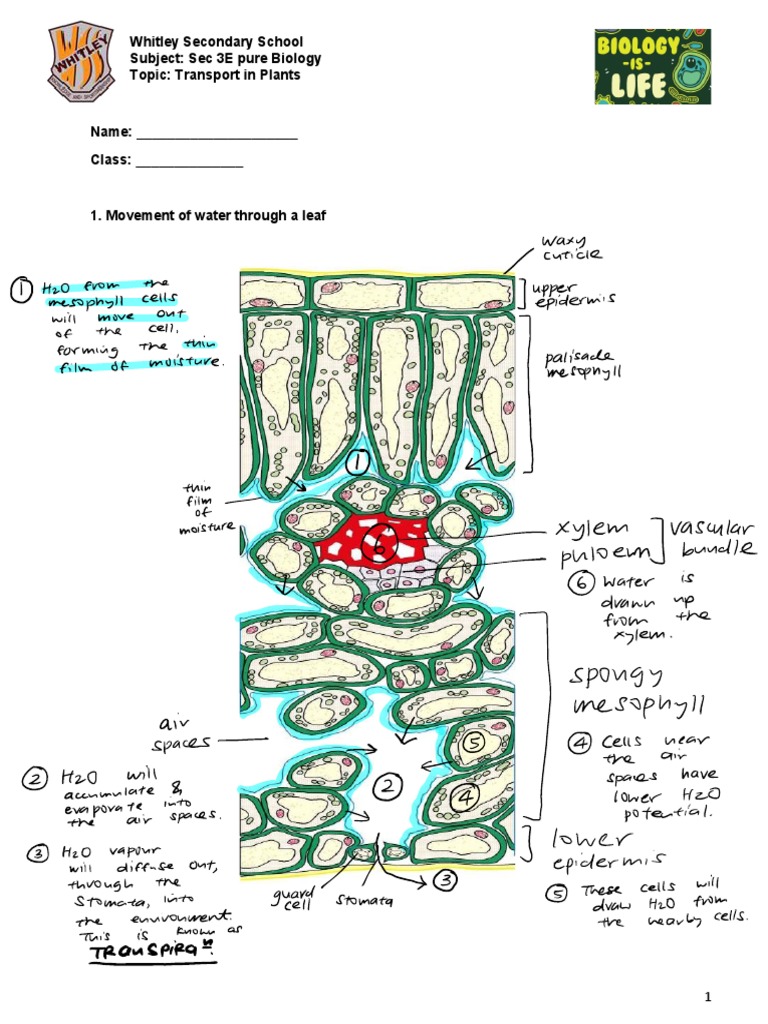 WHITLEY
WSS
Whitley Secondary School
Subject: Sec 3E pure Biology
Topic: Transport in Plants
BIOLOGY
-IS-
LIFE
Name: ______________________
Class: _______________
1. Movement of water through a leaf
waxy
cuticle
① H2O from the
mesophyll cells
will move out
of the cell,
forming the thin
film of moisture.
upper
epidermis
palisade
mesophyll
①
thin
film
of
moisture
⑥
xylem
phloem
vascular
bundle
⑥ Water is
drawn up
from the
xylem.
spongy
mesophyll
air
spaces
⑤
②
④
④ Cells near
the air
spaces have
lower H2O
potential.
② H2O will
accumulate &
evaporate into
the air spaces.
③ H2O vapour
will diffuse out,
through the
stomata, into
the environment.
This is known as
TRANSPIRAⁿ.
lower
epidermis
guard
cell
stomata
③
⑤ These cells will
draw H2O from
the nearby cells.
1